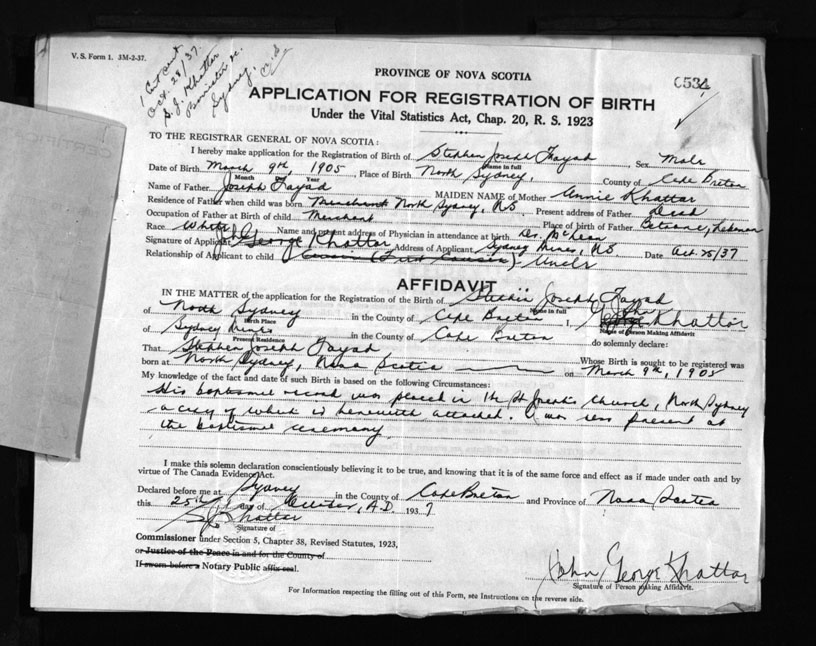 V. S. Form 1. 3M-2-37.
1 Cert sent
Oct. 28/37.
S. J. Khattar
Barrister &c.
Sydney,
PROVINCE OF NOVA SCOTIA
6534
APPLICATION FOR REGISTRATION OF BIRTH
Under the Vital Statistics Act, Chap. 20, R. S. 1923
CERTIFIC
TO THE REGISTRAR GENERAL OF NOVA SCOTIA:
I hereby make application for the Registration of Birth of Stephen Joseph Fayad Sex Male
Name in full
Date of Birth March 9th, 1905, Place of Birth North Sydney, County of Cape Breton
Month Day Year
Name of Father Joseph Fayad MAIDEN NAME of Mother Annie Khattar
Residence of Father when child was born Merchant North Sydney, N.S. Present address of Father Dead
Occupation of Father at Birth of child Merchant Place of birth of Father Lebanon
Race White Name and present address of Physician in attendance at birth Dr. McLean
Signature of Applicant John George Khattar Address of Applicant Sydney Mines, N.S. Date Oct. 25/37
Relationship of Applicant to child Cousin (First Cousin) Uncle
AFFIDAVIT
IN THE MATTER of the application for the Registration of the Birth of Stephen Joseph Fayad
Name in full
of North Sydney in the County of Cape Breton I, John George Khattar
Birth Place
Name of Person Making Affidavit
of Sydney Mines in the County of Cape Breton do solemnly declare:
Present Residence
That Stephen Joseph Fayad Whose Birth is sought to be registered was
born at North Sydney, Nova Scotia on March 9th, 1905
My knowledge of the fact and date of such Birth is based on the following Circumstances:
His baptismal record was placed in the St Joseph's Church, North Sydney
a copy of which is herewith attached. I was also present at
the baptismal ceremony
I make this solemn declaration conscientiously believing it to be true, and knowing that it is of the same force and effect as if made under oath and by
virtue of The Canada Evidence Act.
Declared before me at Sydney in the County of Cape Breton and Province of Nova Scotia
this 25th day of October, A.D. 1937
S J Khattar
Signature of
Commissioner under Section 5, Chapter 38, Revised Statutes, 1923,
or Justice of the Peace in and for the County of
If sworn before a Notary Public affix seal.
John George Khattar
Signature of Person making Affidavit.
For Information respecting the filling out of this Form, see Instructions on the reverse side.